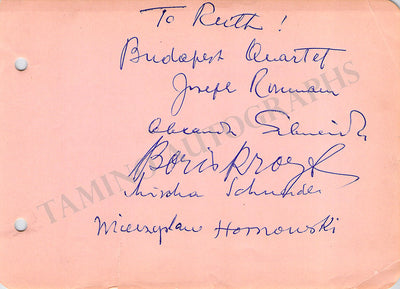 To Ruth!
Budapest Quartet
Joseph Roismann
Alexander Schneider
Boris Kroyt
Mischa Schneider
Mieczyslaw Horszowski
TAMINO AUTOGRAPHS